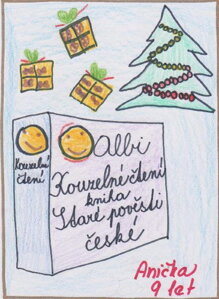 Albi
Kouzelné
čtení
Kouzelné čtení
kniha
Staré pověsti
české
Anička
9 let